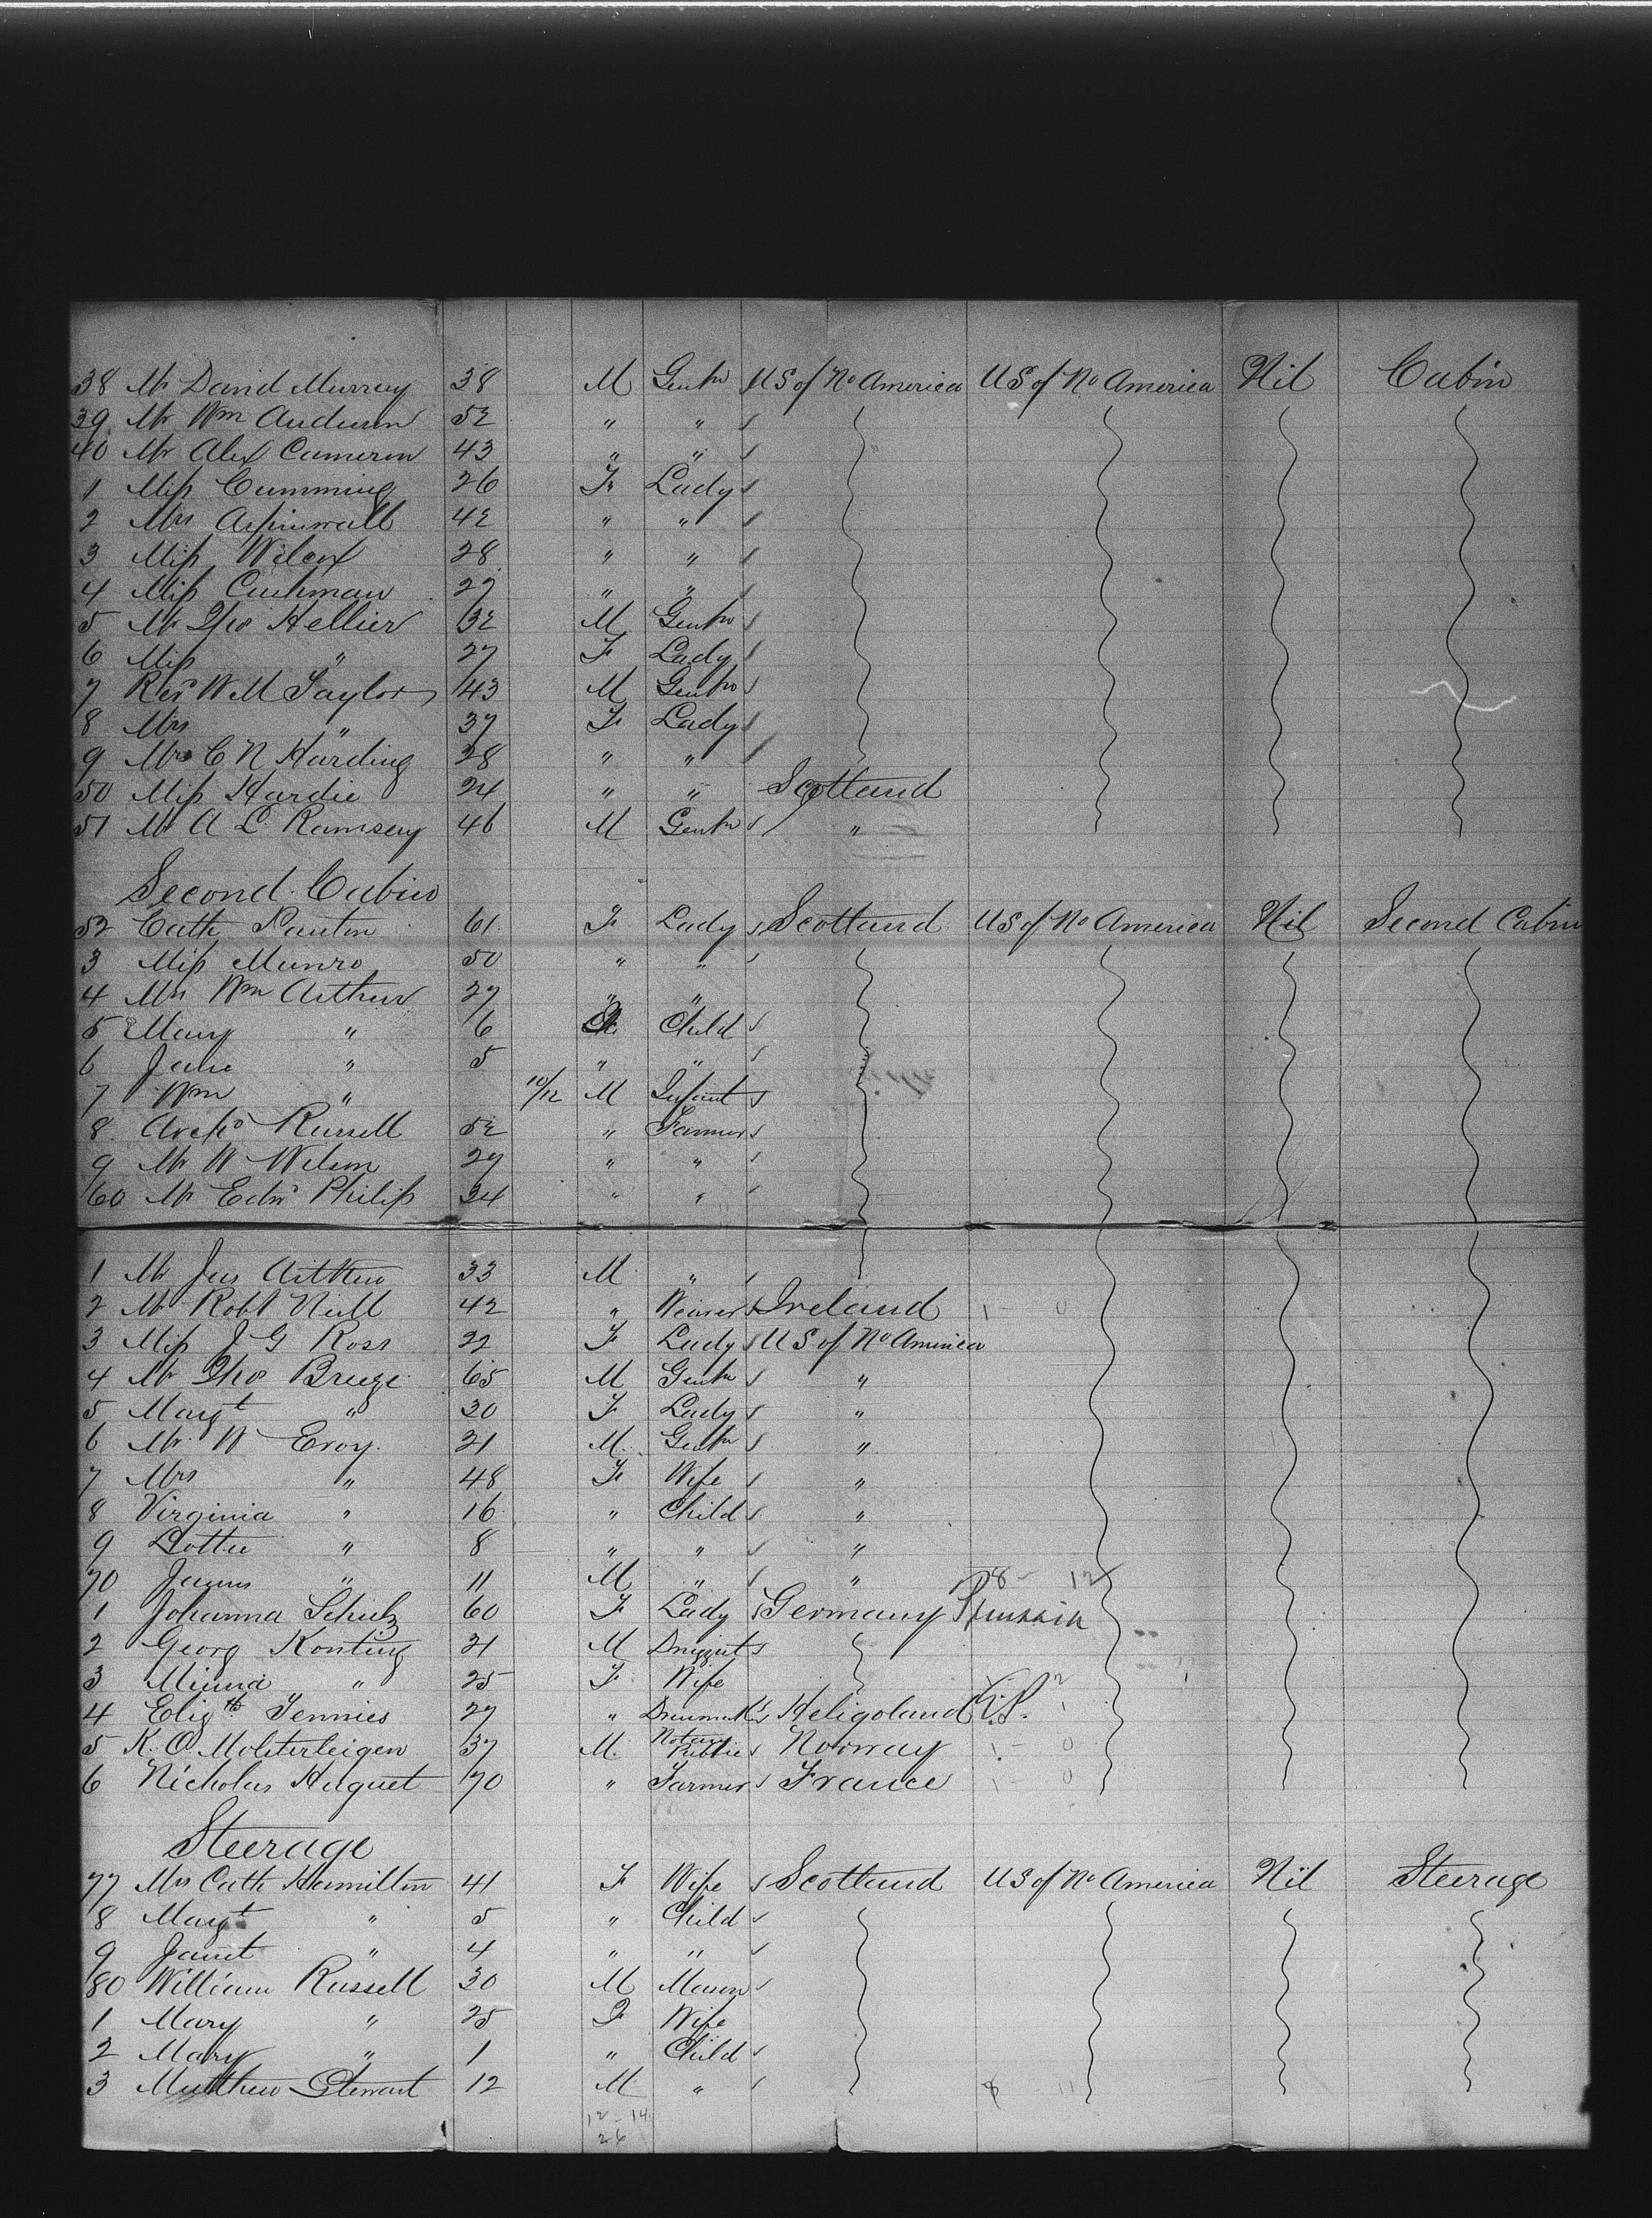 38 Mr David Murray 38 M Gentn US of No America US of No America Nil Cabin
39 Mr Wm Anderson 52 " "
40 Mr Alex Cameron 43 " "
1 Miss Cumming 26 F Lady
2 Mrs Aspinwall 42 " "
3 Miss Wilcox 28 " "
4 Miss Cushman 27 " "
5 Mr Thos Hellier 32 M Gentn
6 Miss " 27 F Lady
7 Revd W M Taylor 43 M Gentn
8 Mrs " 37 F Lady
9 Mrs C N Harding 28 " "
50 Miss Hardie 24 " " Scotland
51 Mr A L Ramsay 46 M Gentn "
Second Cabin
52 Cath Panton 61 F Lady Scotland US of No America Nil Second Cabin
3 Miss Munro 50 " "
4 Mrs Wm Arthur 27 " "
5 Mary " 6 Child
6 Jane " 5 " "
7 Wm " 10/12 M Infant
8 Archd Russell 52 " Farmer
9 Mr W Wilson 27 " "
60 Mr Edwd Philip 34 " "
1 Mr Jas Aitken 33 M "
2 Mr Robt Neill 42 " Weaver Ireland 1 - 0
3 Miss J G Ross 22 F Lady US of No America
4 Mr Thos Breeze 65 M Gentn "
5 Margt " 30 F Lady "
6 Mr W Eroy 21 M Gentn "
7 Mrs " 48 F Wife "
8 Virginia " 16 " Child "
9 Lottie " 8 " " "
70 James " 11 M " " 8 - 12
1 Johanna Schulz 60 F Lady Germany Prussia
2 Georg Konting 21 M Druggist
3 Minna " 25 F Wife
4 Elizth Tennies 27 " Dressmaker Heligoland
5 K. O Molsterleigen 37 M. Notary Public Norway 1 - 0
6 Nicholas Huguet 70 " Farmer France 1 - 0
Steerage
77 Mrs Cath Hamilton 41 F Wife Scotland US of No America Nil Steerage
8 Margt " 5 " Child
9 Janet " 4 " "
80 William Russell 30 M Mason
1 Mary " 25 F Wife
2 Mary " 1 " Child
3 Matthew Stewart 12 M " 8 11
12 - 14
26